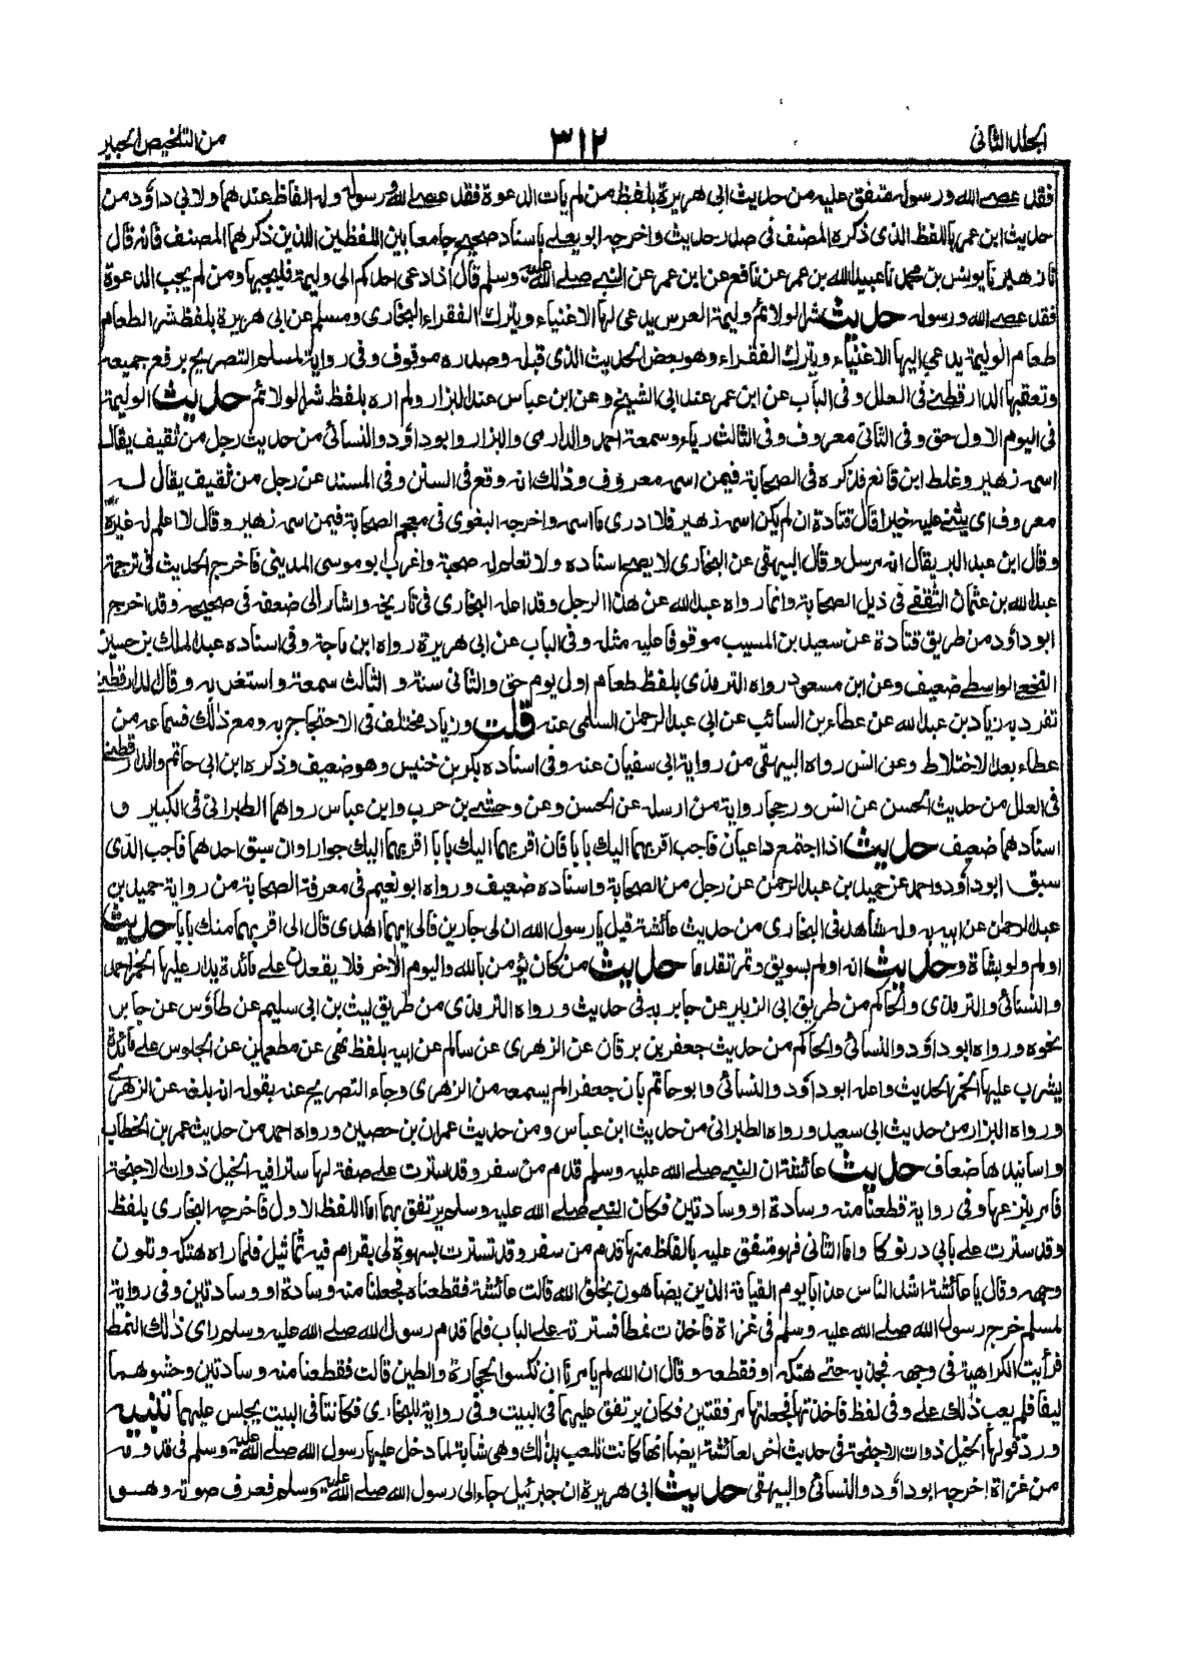 الجلد الثانى ٣١٢ من التلخيص الحبير
فقد عصى الله ورسوله متفق عليه من حديث ابى هريرة بلفظ من لم يات الدعوة فقد عصى الله ورسوله وله الفاظ عندهما ولابى داؤد من
حديث ابن عمر باللفظ الذى ذكره المصنف فى صدر حديث واخرجه ابو يعلى باسناد صحيح جامعا بين اللفظين اللذين ذكرهما المصنف فانه قال
نا زهير نا يونس بن محمد نا عبيد الله بن عمر عن نافع عن ابن عمر عن النبى صلى الله عليه وسلم قال اذا دعى احدكم الى وليمة فليجبها ومن لم يجب الدعوة
فقد عصى الله ورسوله حديث شر الولائم وليمة العرس يدعى لها الاغنياء ويترك الفقراء البخارى ومسلم عن ابى هريرة بلفظ شر الطعام
طعام الوليمة يدعى اليها الاغنياء ويترك الفقراء وهو بعض الحديث الذى قبله وصدره موقوف وفى رواية لمسلم التصريح برفع جميعه
وتعقبها الدارقطنى فى العلل وفى الباب عن ابن عمر عند ابى الشيخ وعن ابن عباس عند البزار ولم اره بلفظ شر الولائم حديث الوليمة
فى اليوم الاول حق وفى الثانى معروف وفى الثالث رياء وسمعة احمد والدارمى والبزار وابو داؤد والنسائى من حديث رجل من ثقيف يقال
اسمه زهير وغلط ابن قانع فذكره فى الصحابة فيمن اسمه معروف وذلك انه وقع فى السنن وفى المسند عن رجل من ثقيف يقال له
معروف اى يثنى عليه خيرا قال قتادة ان لم يكن اسمه زهير فلا ادرى ما اسمه واخرجه البغوى فى معجم الصحابة فيمن اسمه زهير وقال لا اعلم له غيره
وقال ابن عبد البر يقال انه مرسل وقال البيهقى عن البخارى لا يصح اسناده ولا تعلم له صحبة واغرب ابو موسى المدينى فاخرج الحديث فى ترجمة
عبد الله بن عثمان الثقفى فى ذيل الصحابة وانما رواه عبد الله عن هذا الرجل وقد اعله البخارى فى تاريخه واشار الى ضعفه فى صحيحه وقد اخرجه
ابو داؤد من طريق قتادة عن سعيد بن المسيب موقوفا عليه مثله وفى الباب عن ابى هريرة رواه ابن ماجة وفى اسناده عبد الملك بن حسين
النخعى الواسطى ضعيف وعن ابن مسعود رواه الترمذى بلفظ طعام اول يوم حق والثانى سنة والثالث سمعة واستغربه وقال الدارقطنى
تفرد به زياد بن عبد الله عن عطاء بن السائب عن ابى عبد الرحمن السلمى عنه قلت وزياد مختلف فى الاحتجاج به ومع ذلك فسماعه من
عطاء بعد الاختلاط وعن انس رواه البيهقى من رواية ابى سفيان عنه وفى اسناده بكر بن خنيس وهو ضعيف وذكره ابن ابى حاتم والدارقطنى
فى العلل من حديث الحسن عن انس ورجحا رواية من ارسله عن الحسن وعن وحشى بن حرب وابن عباس رواهما الطبرانى فى الكبير و
اسنادهما ضعيف حديث اذا اجتمع داعيان فاجب اقربهما اليك بابا فان اقربهما اليك بابا اقربهما اليك جوارا وان سبق احدهما فاجب الذى
سبق ابو داؤد واحمد عن حميد بن عبد الرحمن عن رجل من الصحابة واسناده ضعيف ورواه ابو نعيم فى معرفة الصحابة من رواية حميد بن
عبد الرحمن عن ابيه به وله شاهد فى البخارى من حديث عائشة قيل يا رسول الله ان لى جارين فالى ايهما اهدى قال الى اقربهما منك بابا حديث
اولم ولو بشاة وحديث انه اولم بسويق وتمر تقدما حديث من كان يؤمن بالله واليوم الآخر فلا يقعدن على مائدة يدار عليها الخمر احمد
والنسائى والترمذى والحاكم من طريق ابى الزبير عن جابر به فى حديث ورواه الترمذى من طريق ليث بن ابى سليم عن طاؤس عن جابر
نحوه ورواه ابو داؤد والنسائى والحاكم من حديث جعفر بن برقان عن الزهرى عن سالم عن ابيه بلفظ نهى عن مطعمين عن الجلوس على مائدة
يشرب عليها الخمر الحديث واعله ابو داؤد والنسائى وابو حاتم بان جعفرا لم يسمعه من الزهرى وجاء التصريح عنه بقوله انه بلغه عن الزهرى
ورواه البزار من حديث ابى سعيد ورواه الطبرانى من حديث ابن عباس ومن حديث عمران بن حصين ورواه احمد من حديث عمر بن الخطاب
واسانيدها ضعاف حديث عائشة ان النبى صلى الله عليه وسلم قدم من سفر وقد سترت على صفة لها سترا فيه الخيل ذوات الاجنحة
فامر بنزعها وفى رواية قطعنا منه وسادة او وسادتين فكان النبى صلى الله عليه وسلم يرتفق بهما اما اللفظ الاول فاخرجه البخارى بلفظ
وقد سترت على بابى درنوكا واما الثانى فهو متفق عليه بالفاظ منها قدم من سفر وقد تسترت بسهوة لى بقرام فيه تماثيل فلما راه هتكه وتلون
وجهه وقال يا عائشة اشد الناس عذابا يوم القيامة الذين يضاهون بخلق الله قالت عائشة فقطعناه فجعلنا منه وسادة او وسادتين وفى رواية
لمسلم خرج رسول الله صلى الله عليه وسلم فى غزاة فاخذت نمطا فسترته على الباب فلما قدم رسول الله صلى الله عليه وسلم راى ذلك النمط
فرأيت الكراهية فى وجهه فجذبه حتى هتكه او قطعه وقال ان الله لم يامرنا ان نكسوا الحجارة والطين قالت فقطعنا منه وسادتين وحشوهما
ليفا فلم يعب ذلك على وفى لفظ فاخذتها فجعلتها مرفقتين فكان يرتفق عليهما فى البيت وفى رواية للبخارى فكانتا فى البيت يجلس عليهما تنبيه
ورد قولها الخيل ذوات الاجنحة فى حديث اخر لعائشة ايضا انها كانت تلعب بذلك وهى شابة لما دخل عليها رسول الله صلى الله عليه وسلم فى قدومه
من غزاة اخرجه ابو داؤد والنسائى والبيهقى حديث ابى هريرة ان جبرئيل جاء الى رسول الله صلى الله عليه وسلم فعرف صوته وهو